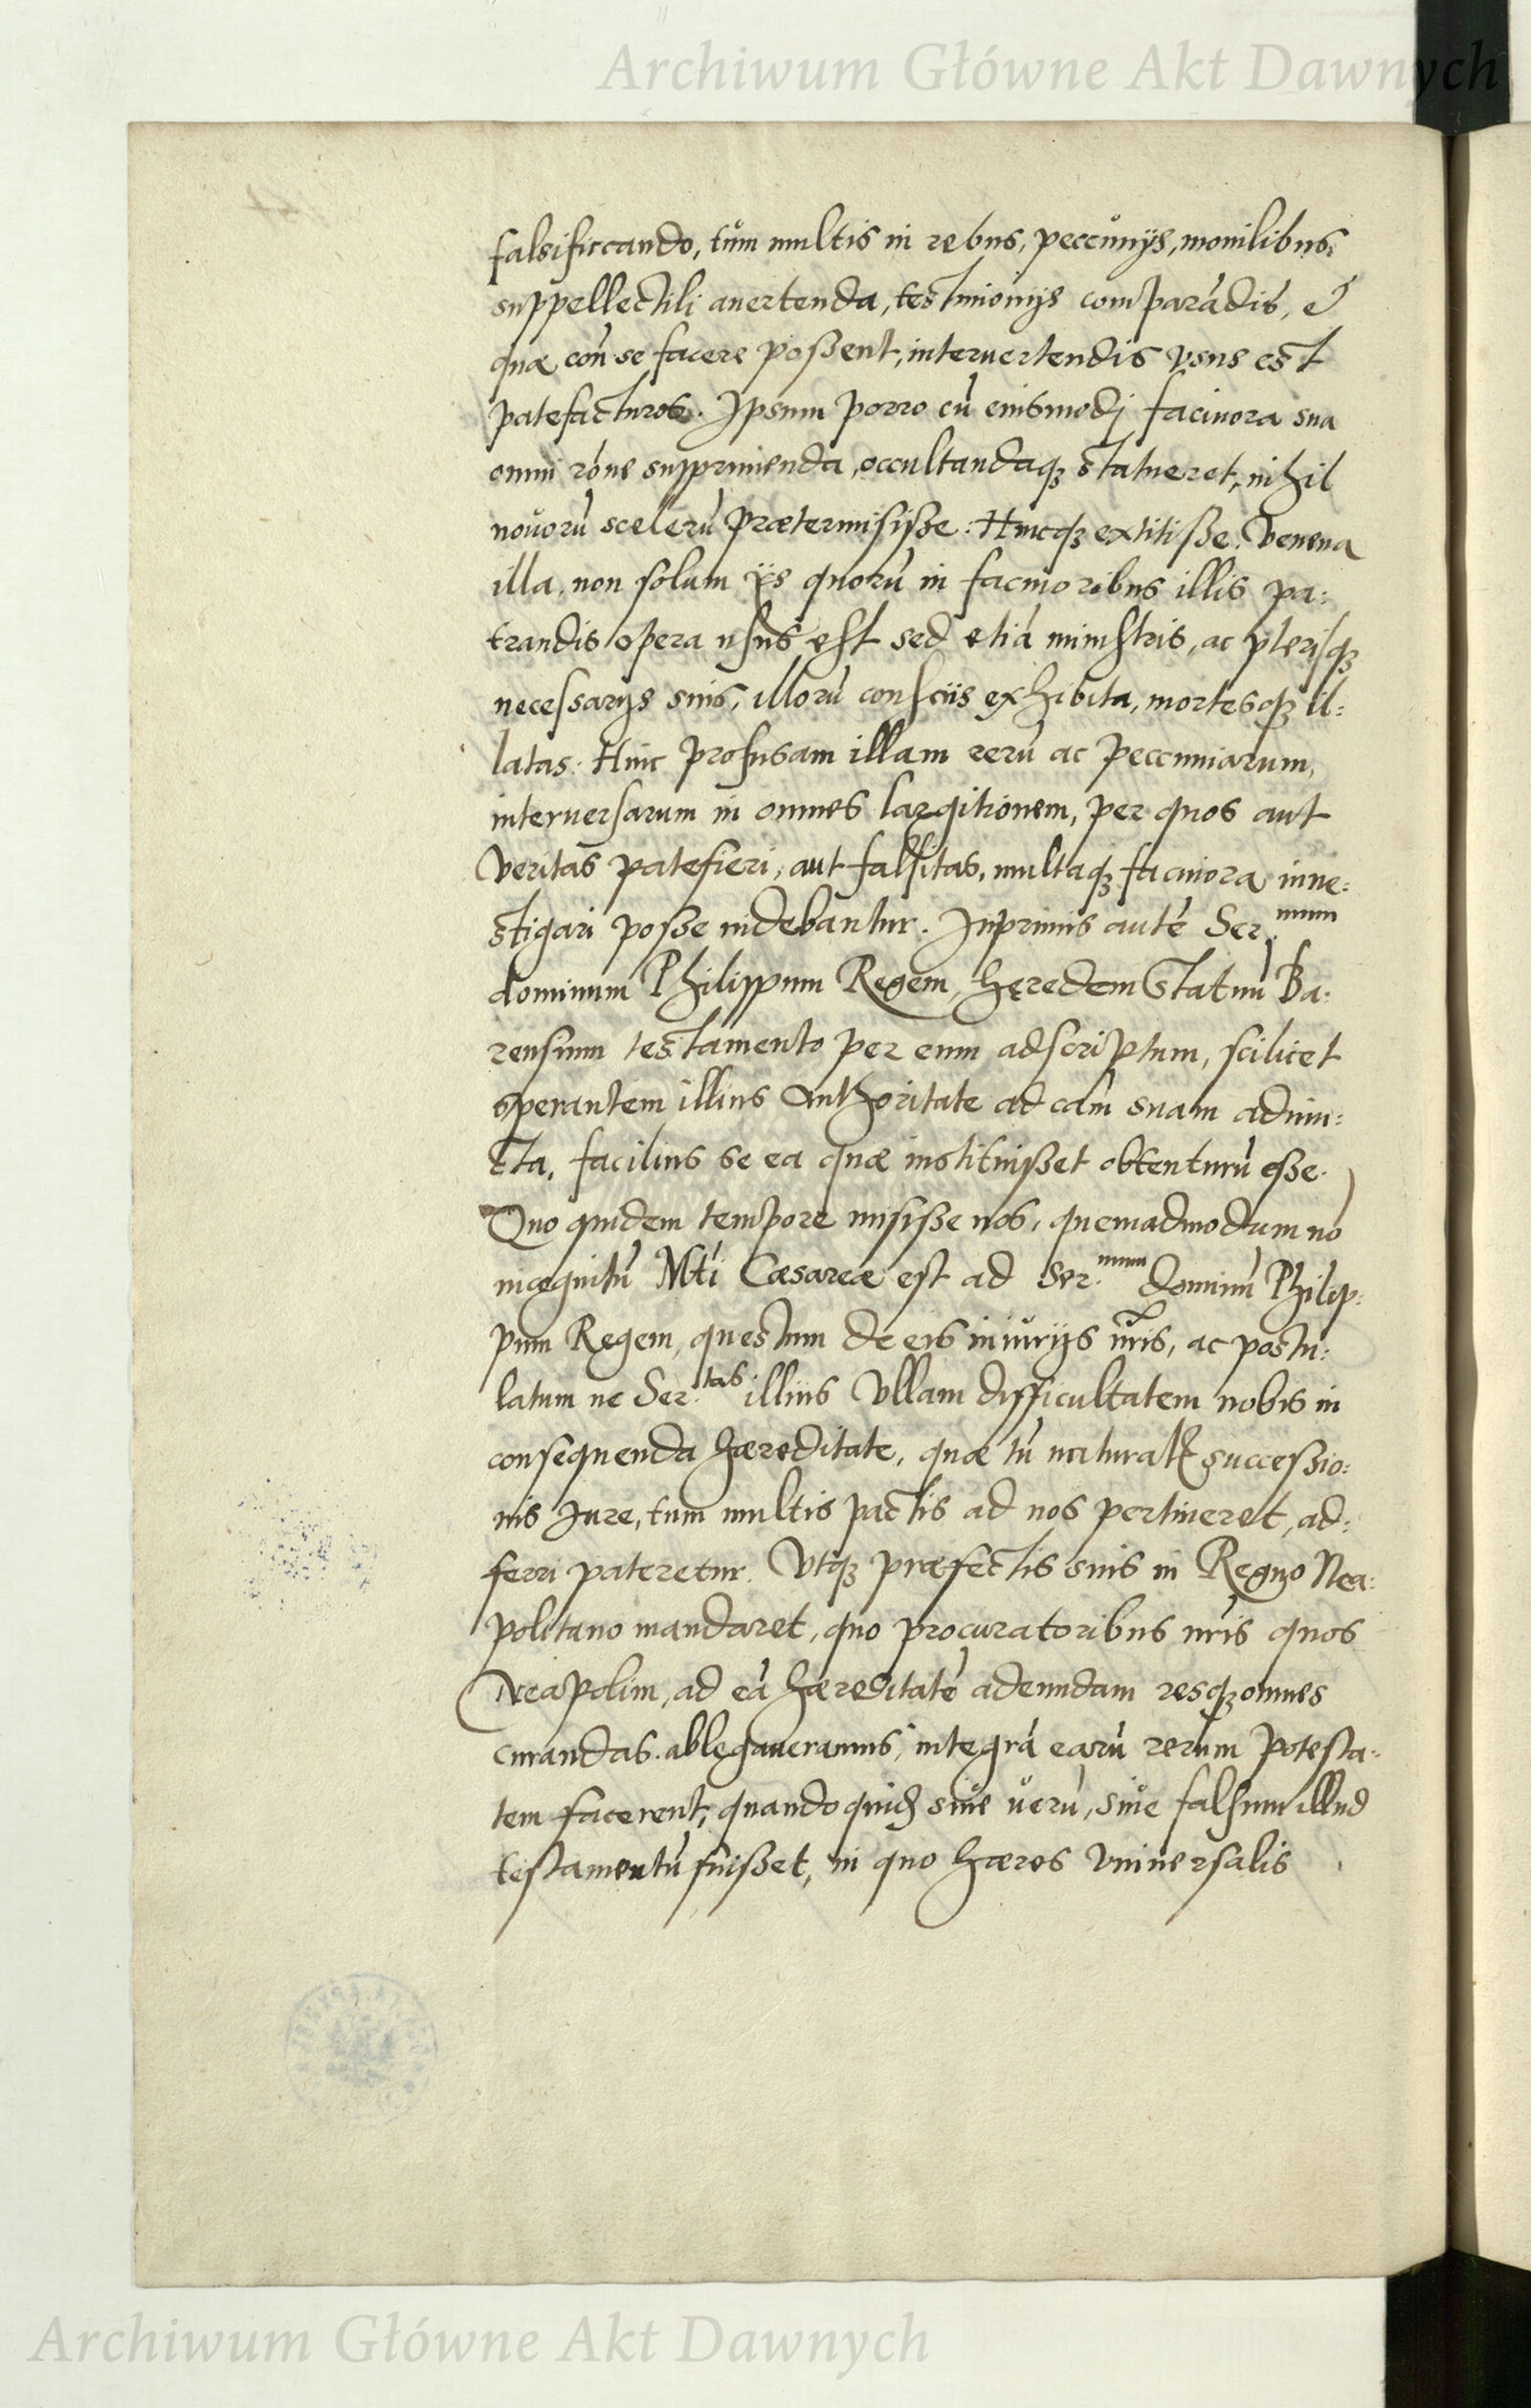 Archiwum Główne Akt Dawnych
falsificcando, tům multis in rebus, peccůnijs, monilibus,
suppellectili auertenda, testimonijs comparādis, &
quæ con̄ se facere poßent, interuertendis vsus est
patefacturos. Ipsum porro cū eiusmodj facinora sua
omni rōne supprimenda, occultandaqꝫ statueret, nihil
nouorū scelerū prætermisiße: Hincqꝫ extitiße. Venena
illa, non solum ijs quorū in facinoribus illis pa:
trandis opera usus est sed etiā ministris, ac plerisqꝫ
necessarijs suis, illorū consciis exhibita, mortesqꝫ il:
latas. Hinc profusam illam rerū ac peccuniarum,
interuersarum in omnes largitionem, per quos aut
veritas patefieri, aut falsitas, multaqꝫ facinora inue:
stigari poße uidebantur. Inprimis autē Ser.mum
dominum Philippum Regem, hęredem Statuū Ba:
rensium testamento per eum adscriptum, scilicet
sperantem illius Authoritate ad cām suam adiun:
cta, facilius se ea quæ instituißet obtenturū eße.
Quo quidem tempore misiße nos, quemadmodum nō
incognitū Mti Cæsareæ est ad Ser.mum dominū Philip:
pum Regem, questum de eis iniurijs n̄ris, ac postu:
latum ne Ser.tas illius Vllam difficultatem nobis in
consequenda hæreditate, quæ tū naturalꝭ succeßio:
nis Jure, tum multis pactis ad nos pertineret, ad:
ferri pateretur. Vtqꝫ præfectis suis in Regno Nea:
politano mandaret, quo procuratoribus n̄ris quos
Neapolim, ad eā hæreditatē adeundam resqꝫ omnes
curandas. ablegaueramus, integrā earū rerum potesta:
tem facerent, quandoquidꝫ siue uerū, siue falsum illud
testamentū fuißet, in quo hæres vniuersalis
Archiwum Główne Akt Dawnych